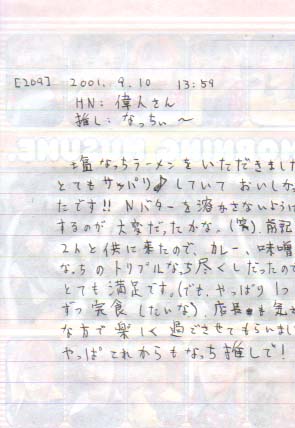 [209] 2001. 9. 10 13:59
HN: 偉人さん
推し: なっちぃ〜
塩なっちラーメンをいただきました
とてもサッパリ♪していておいしか
たです!! Nバターを溶かさないように
するのが大変だったかな。(笑). 前記
2人と供に来たので、カレー、味噌
なっちのトリプルなっち尽くしだったので
とても満足です。(でも、やっぱり1つ
ずつ完食したいな). 店長も気さ
な方で楽しく過ごさせてもらいまし
やっぱこれからもなっち推しで!
MORNING MUSUME.